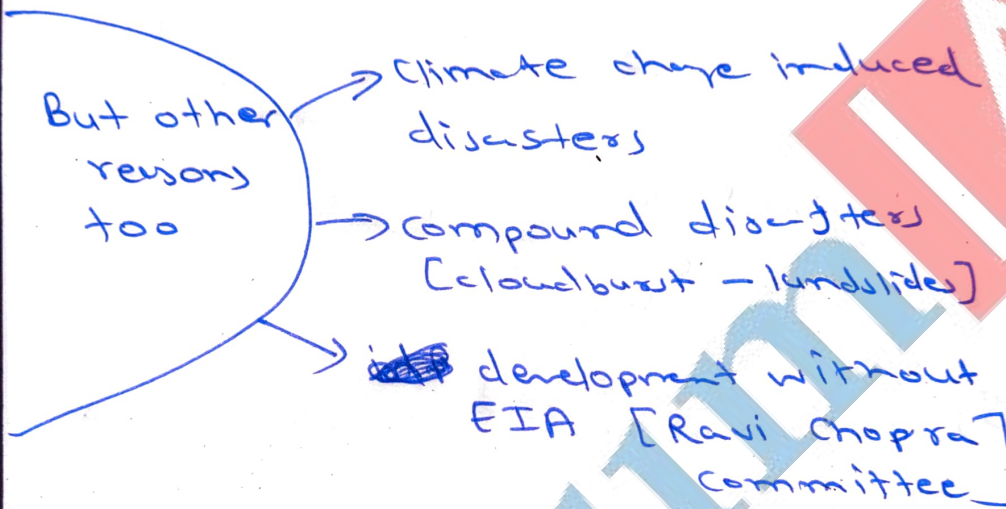 But other
reasons
too
Climate change induced
disasters
compound disasters
[cloudburst - landslides]
development without
EIA [Ravi Chopra]
committee